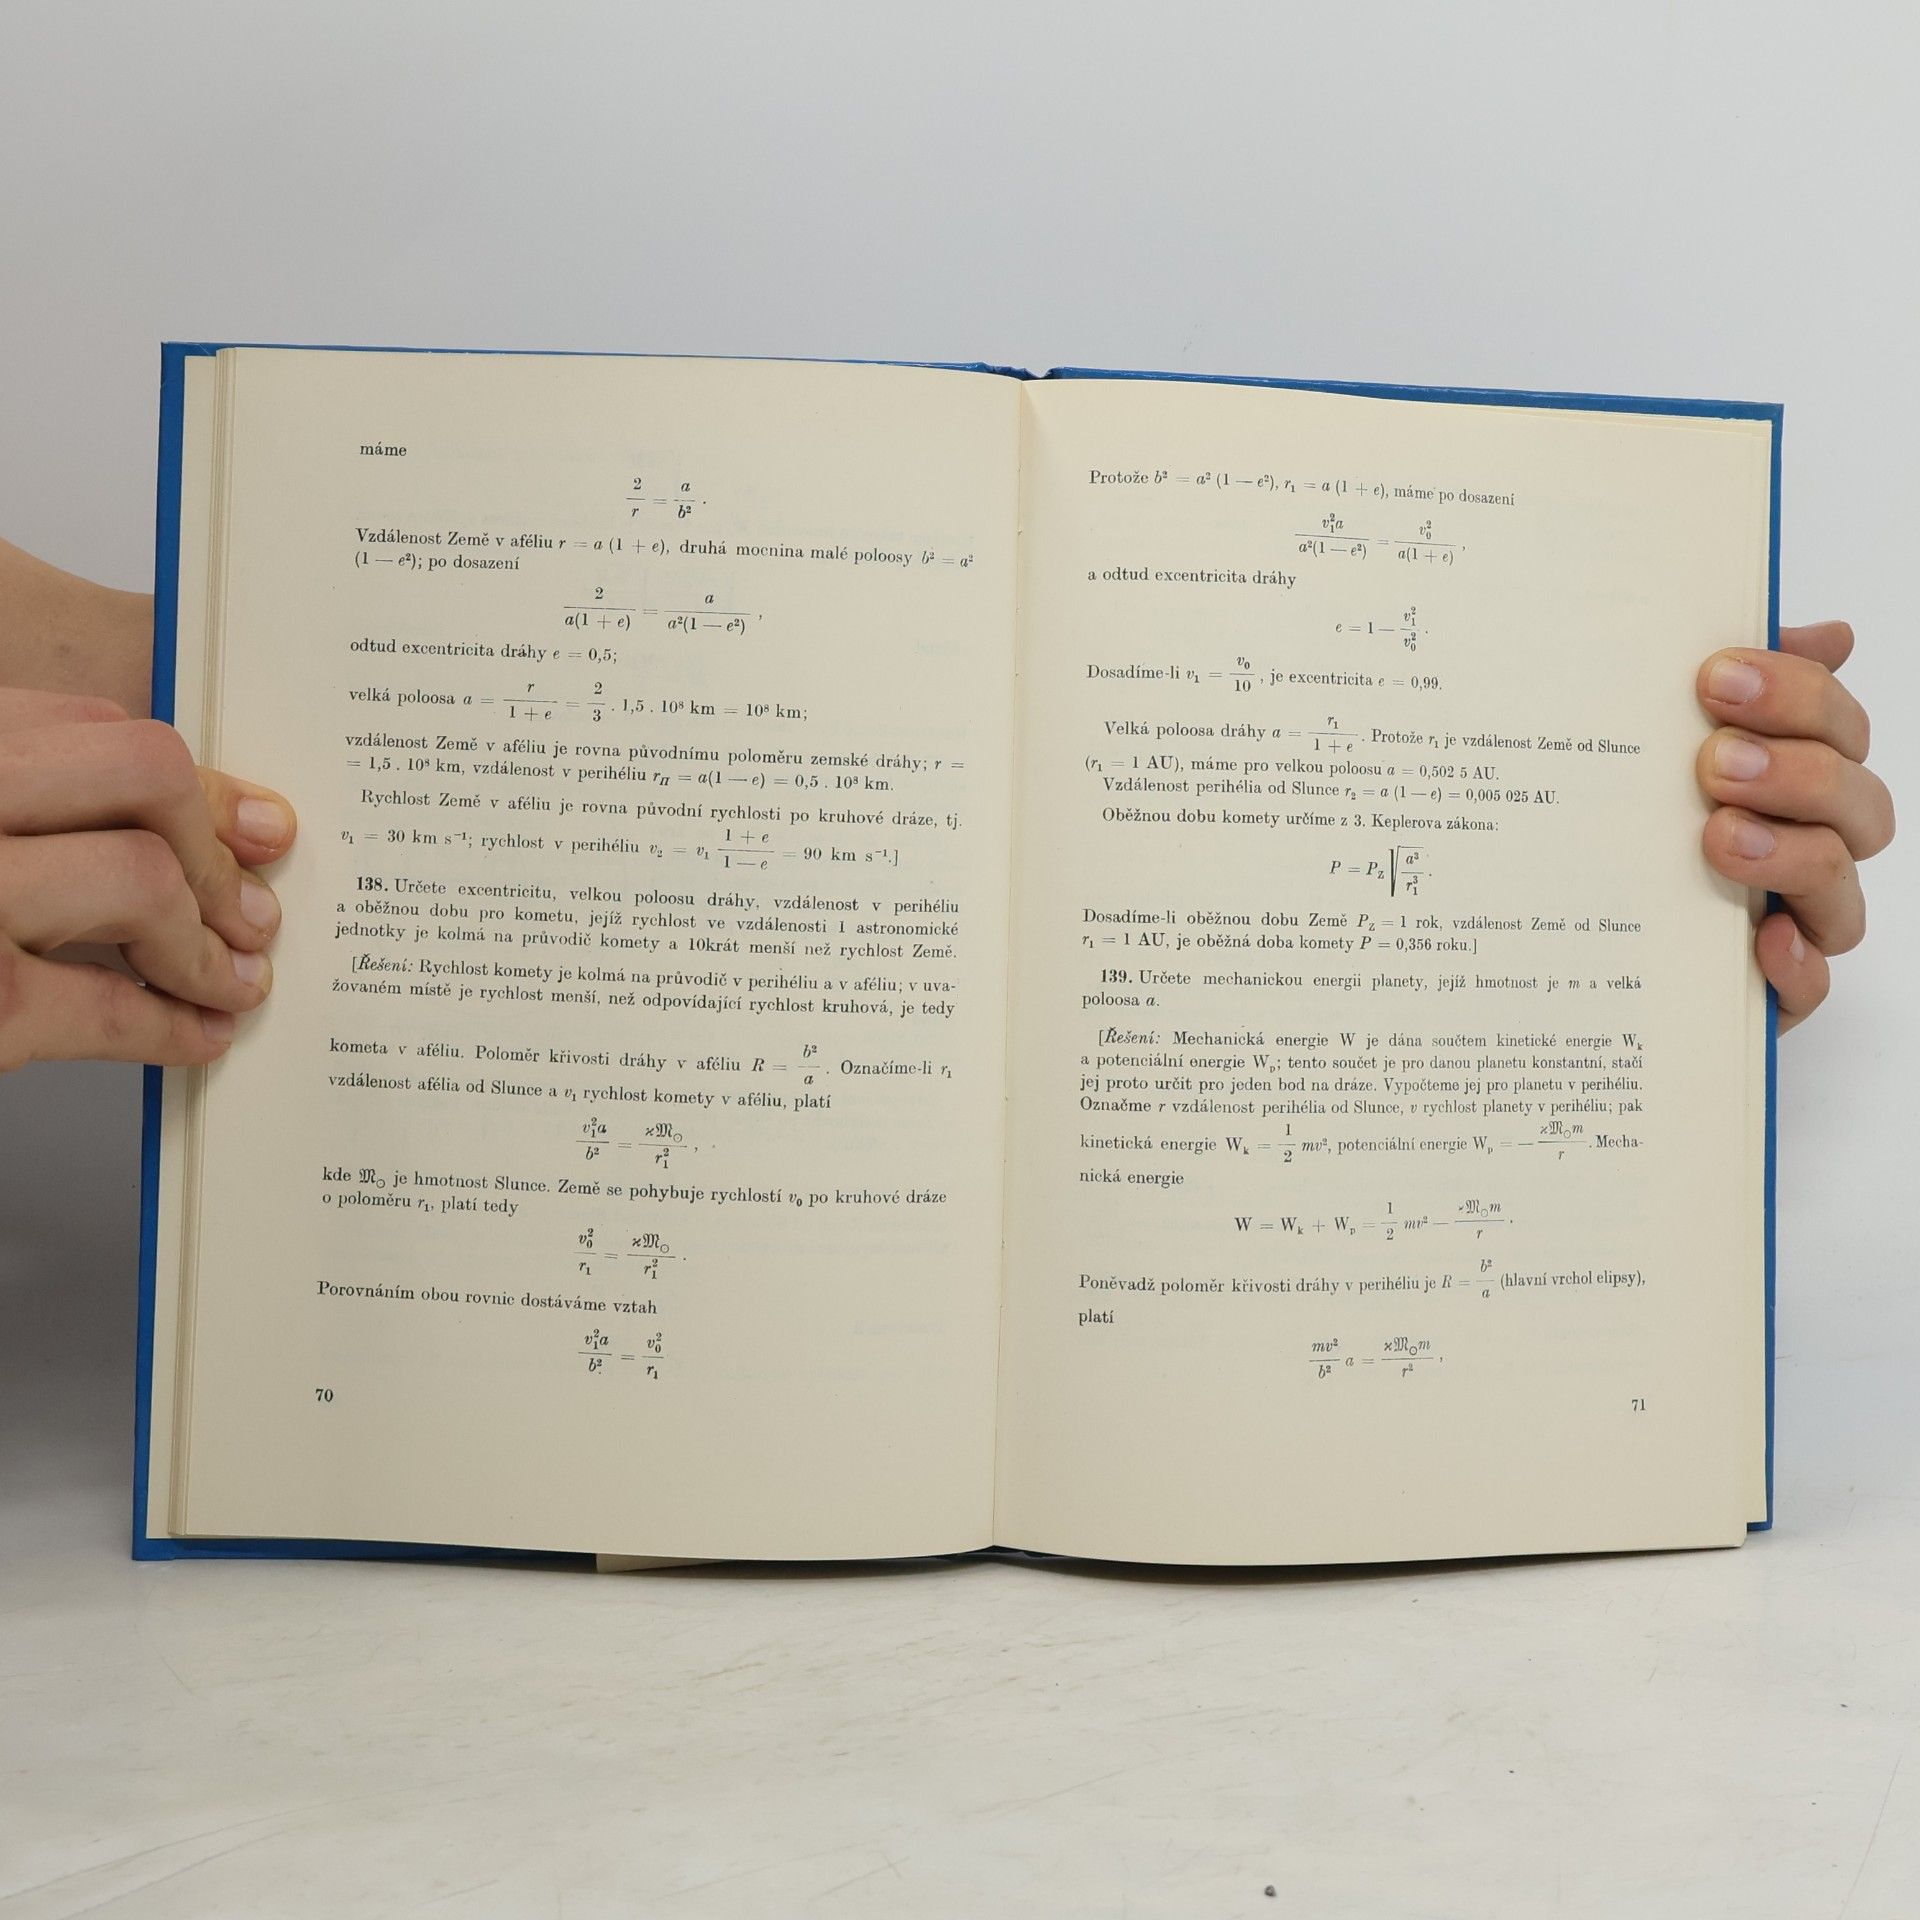 máme
2/r = a/b² .
Vzdálenost Země v aféliu r = a (1 + e), druhá mocnina malé poloosy b² = a²
(1 — e²); po dosazení
2/(a(1 + e)) = a/(a²(1 — e²)) ,
odtud excentricita dráhy e = 0,5;
velká poloosa a = r/(1 + e) = 2/3 . 1,5 . 10⁸ km = 10⁸ km;
vzdálenost Země v aféliu je rovna původnímu poloměru zemské dráhy; r =
= 1,5 . 10⁸ km, vzdálenost v perihéliu r_Π = a(1 — e) = 0,5 . 10⁸ km.
Rychlost Země v aféliu je rovna původní rychlosti po kruhové dráze, tj.
v₁ = 30 km s⁻¹; rychlost v perihéliu v₂ = v₁ (1 + e)/(1 — e) = 90 km s⁻¹.]
138. Určete excentricitu, velkou poloosu dráhy, vzdálenost v perihéliu
a oběžnou dobu pro kometu, jejíž rychlost ve vzdálenosti 1 astronomické
jednotky je kolmá na průvodič komety a 10krát menší než rychlost Země.
[Řešení: Rychlost komety je kolmá na průvodič v perihéliu a v aféliu; v uva-
žovaném místě je rychlost menší, než odpovídající rychlost kruhová, je tedy
kometa v aféliu. Poloměr křivosti dráhy v aféliu R = b²/a . Označíme-li r₁
vzdálenost afélia od Slunce a v₁ rychlost komety v aféliu, platí
v₁²a/b² = ϰ𝔐☉/r₁² ,
kde 𝔐☉ je hmotnost Slunce. Země se pohybuje rychlostí v₀ po kruhové dráze
o poloměru r₁, platí tedy
v₀²/r₁ = ϰ𝔐☉/r₁² .
Porovnáním obou rovnic dostáváme vztah
v₁²a/b² = v₀²/r₁
70
Protože b² = a² (1 — e²), r₁ = a (1 + e), máme po dosazení
v₁²a/(a²(1 — e²)) = v₀²/(a(1 + e)) ,
a odtud excentricita dráhy
e = 1 — v₁²/v₀² .
Dosadíme-li v₁ = v₀/10 , je excentricita e = 0,99.
Velká poloosa dráhy a = r₁/(1 + e) . Protože r₁ je vzdálenost Země od Slunce
(r₁ = 1 AU), máme pro velkou poloosu a = 0,502 5 AU.
Vzdálenost perihélia od Slunce r₂ = a (1 — e) = 0,005 025 AU.
Oběžnou dobu komety určíme z 3. Keplerova zákona:
P = P_Z √(a³/r₁³) .
Dosadíme-li oběžnou dobu Země P_Z = 1 rok, vzdálenost Země od Slunce
r₁ = 1 AU, je oběžná doba komety P = 0,356 roku.]
139. Určete mechanickou energii planety, jejíž hmotnost je m a velká
poloosa a.
[Řešení: Mechanická energie W je dána součtem kinetické energie W_k
a potenciální energie W_p; tento součet je pro danou planetu konstantní, stačí
jej proto určit pro jeden bod na dráze. Vypočteme jej pro planetu v perihéliu.
Označme r vzdálenost perihélia od Slunce, v rychlost planety v perihéliu; pak
kinetická energie W_k = 1/2 mv², potenciální energie W_p = — ϰ𝔐☉m/r . Mecha-
nická energie
W = W_k + W_p = 1/2 mv² — ϰ𝔐☉m/r .
Poněvadž poloměr křivosti dráhy v perihéliu je R = b²/a (hlavní vrchol elipsy),
platí
mv²/b² a = ϰ𝔐☉m/r² ,
71